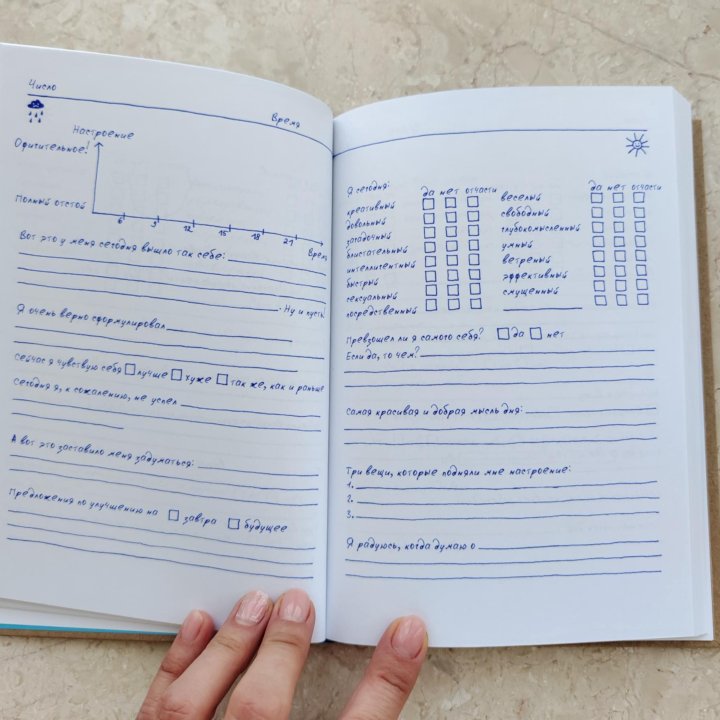 Число
Время
Настроение
Офигительное!
Полный отстой
6 9 12 15 18 21 Время
Вот это у меня сегодня вышло так себе:
. Ну и пусть!
Я очень верно сформулировал
Сейчас я чувствую себя лучше хуже так же, как и раньше
Сегодня я, к сожалению, не успел
А вот это заставило меня задуматься:
Предложения по улучшению на завтра будущее
Я сегодня: да нет отчасти
креативный
довольный
загадочный
блистательный
интеллигентный
быстрый
сексуальный
посредственный
да нет отчасти
веселый
свободный
глубокомысленный
умный
ветреный
эффективный
смущенный
Превзошел ли я самого себя? да нет
Если да, то чем?
Самая красивая и добрая мысль дня:
Три вещи, которые подняли мне настроение:
1.
2.
3.
Я радуюсь, когда думаю о